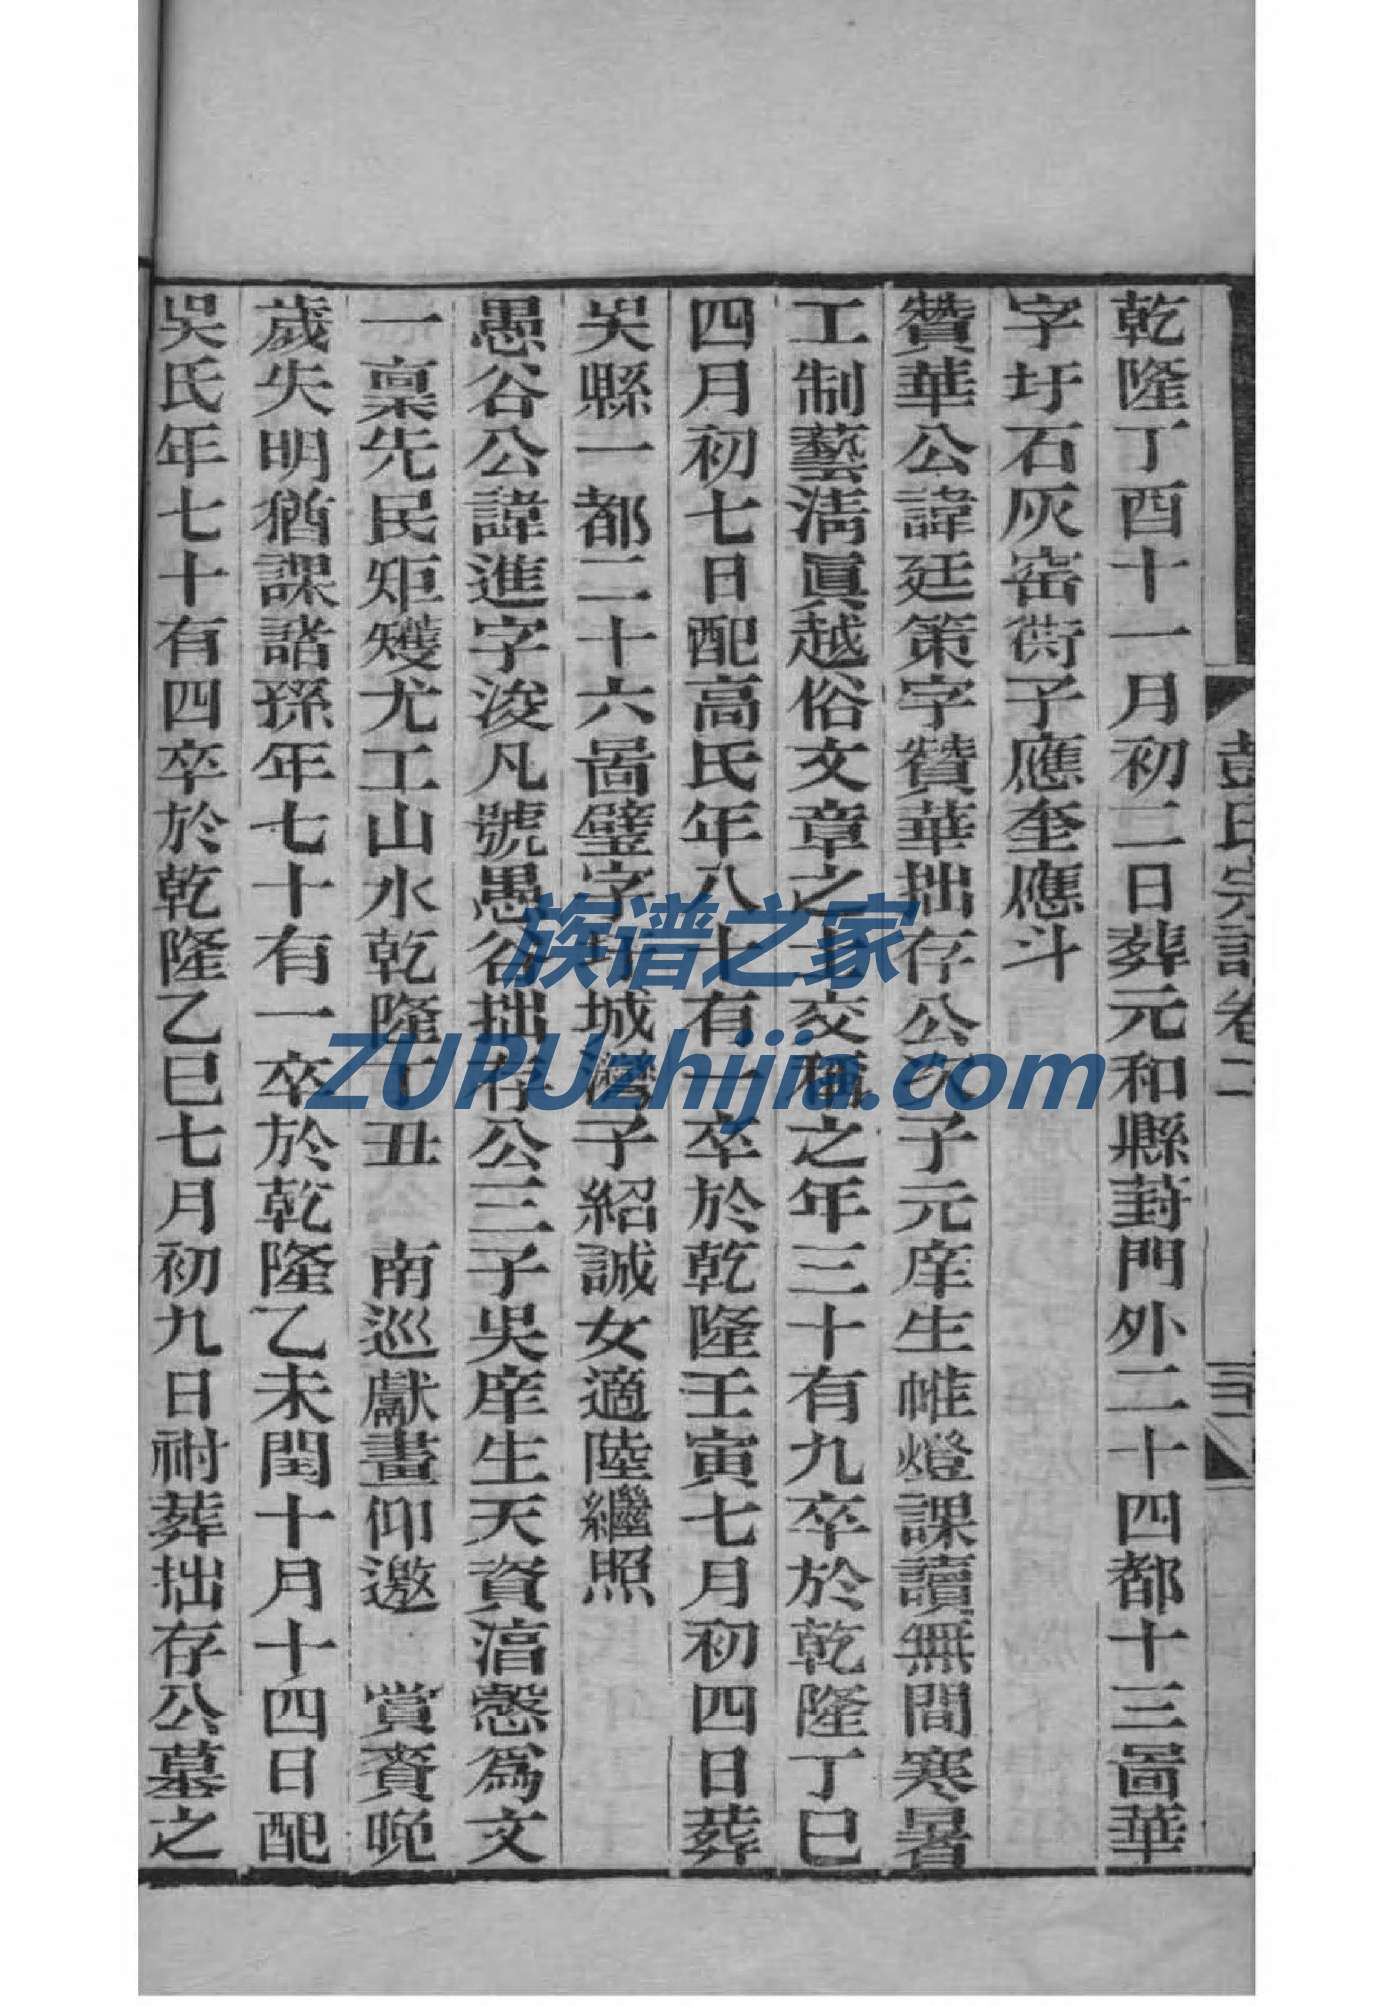 彭氏宗譜卷二
乾隆丁酉十一月初二日葬元和縣葑門外二十四都十三啚華
字圩石灰窑衖子應奎應斗
贊華公諱廷策字贊華拙存公次子元庠生帷燈課讀無間寒暑
工制藝淸眞越俗文章之士交稱之年三十有九卒於乾隆丁巳
四月初七日配高氏年八十有一卒於乾隆壬寅七月初四日葬
吳縣一都二十六啚璧字圩城灣子紹誠女適陸繼照
愚谷公諱進字浚凡號愚谷拙存公三子吳庠生天資湻慤爲文
一稟先民矩矱尤工山水乾隆丁丑 南巡獻畫仰邀 賞賚晚
歲失明猶課諸孫年七十有一卒於乾隆乙未閏十月十四日配
吳氏年七十有四卒於乾隆乙巳七月初九日祔葬拙存公墓之
族谱之家
ZUPUzhijia.com